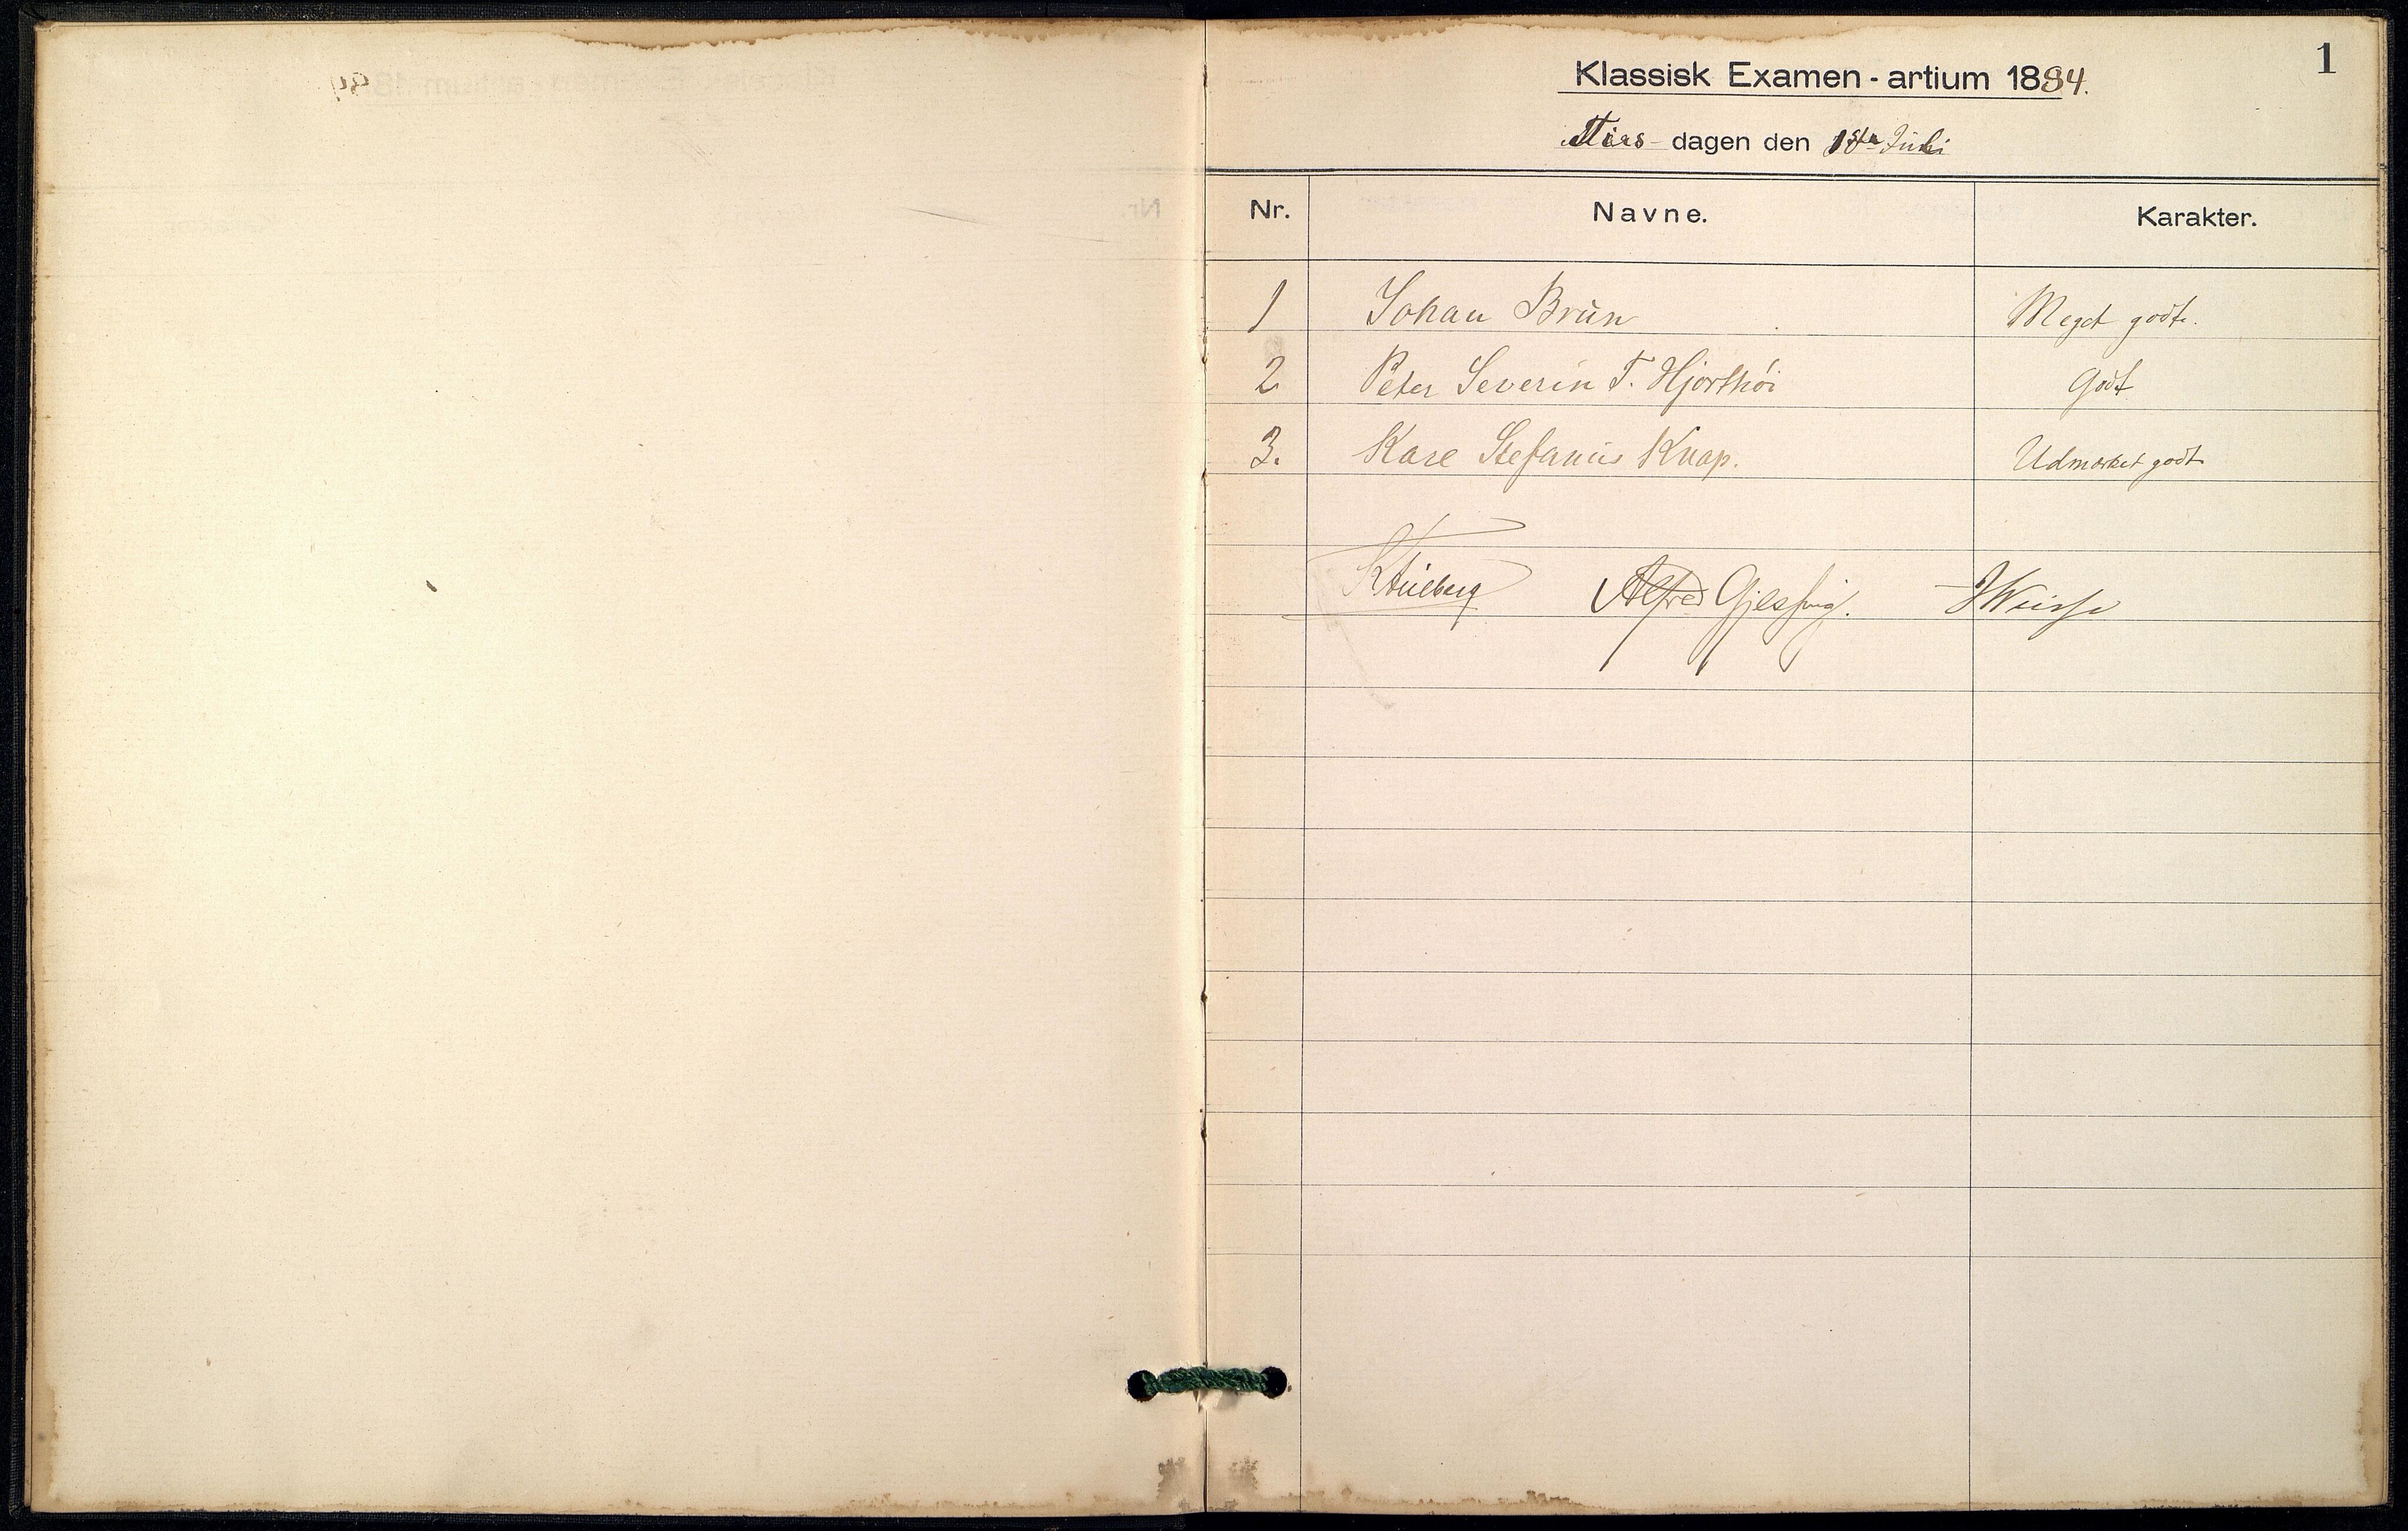 1
Klassisk Examen-artium 1884.
Tirs- dagen den 1ste Juli
Nr. Navne. Karakter.
1 Johan Brŭn Meget godt.
2 Peter Severin T. Hjorthöi Godt
3. Kare Stefanus Knap. Udmærket godt
Alfred Gjessing.